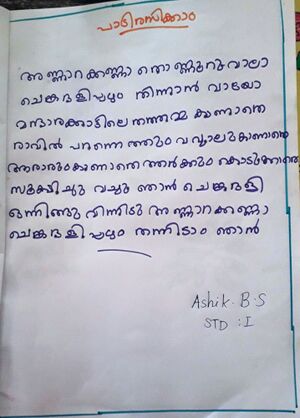 പാടിരസിക്കാം
അണ്ണാറക്കണ്ണാ തൊണ്ണൂറുവാലാ
ചെങ്കദളിപ്പഴം തിന്നാൻ വായോ
മന്ദാരക്കാട്ടിലെ തത്തമ്മ കാണാതെ
രാവിൽ പറന്നെത്തും വവ്വാലുകാണാതെ
ആരാരുംകാണാതെ ആർക്കും കൊടുക്കാതെ
സൂക്ഷിച്ചു വച്ചു ഞാൻ ചെങ്കദളി
ഒന്നിങ്ങു വന്നിടു അണ്ണാറക്കണ്ണാ
ചെങ്കദളിപ്പഴം തന്നിടാം ഞാൻ
Ashik. B. S
STD : I